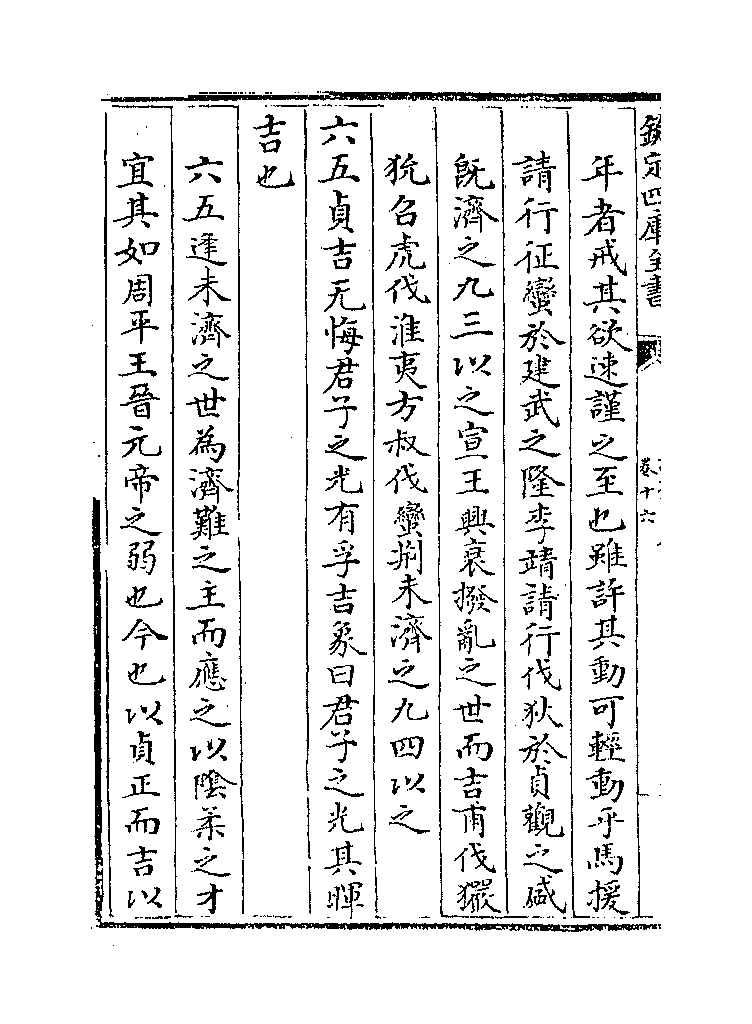 欽定四庫全書
卷十六
年者戒其欲速謹之至也雖許其動可輕動乎馬援
請行征蠻於建武之隆李靖請行伐狄於貞觀之盛
既濟之九三以之宣王興衰撥亂之世而吉甫伐玁
狁召虎伐淮夷方叔伐蠻荆未濟之九四以之
六五貞吉无悔君子之光有孚吉象曰君子之光其暉
吉也
六五逢未濟之世為濟難之主而應之以陰柔之才
宜其如周平王晉元帝之弱也今也以貞正而吉以